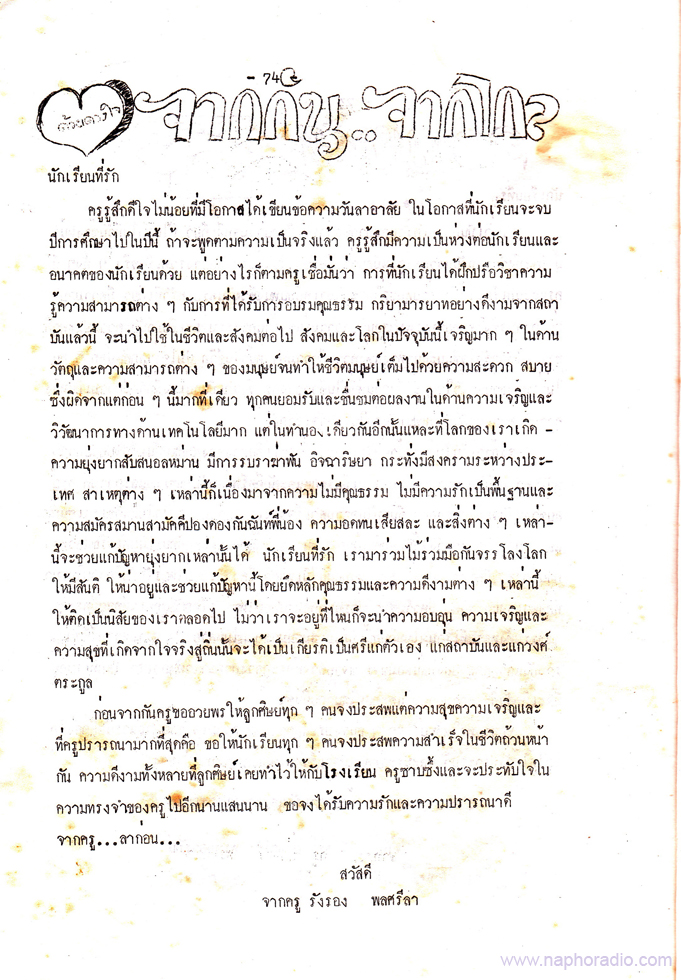 - 74 -
ด้วยดวงใจ
จากกัน.. จากไกล
นักเรียนที่รัก
ครูรู้สึกดีใจไม่น้อยที่มีโอกาสได้เขียนข้อความวันลาอาลัย ในโอกาสที่นักเรียนจะจบ
ปีการศึกษาไปในปีนี้ ถ้าจะพูดตามความเป็นจริงแล้ว ครูรู้สึกมีความเป็นห่วงต่อนักเรียนและ
อนาคตของนักเรียนด้วย แต่อย่างไรก็ตามครูเชื่อมั่นว่า การที่นักเรียนได้ฝึกปรือวิชาความ
รู้ความสามารถต่าง ๆ กับการที่ได้รับการอบรมคุณธรรม กริยามารยาทอย่างดีงามจากสถา
บันแล้วนี้ จะนำไปใช้ในชีวิตและสังคมต่อไป สังคมและโลกในปัจจุบันนี้เจริญมาก ๆ ในด้าน
วัตถุและความสามารถต่าง ๆ ของมนุษย์จนทำให้ชีวิตมนุษย์เต็มไปด้วยความสะดวก สบาย
ซึ่งผิดจากแต่ก่อน ๆ นี้มากที่เดียว ทุกคนยอมรับและชื่นชมต่อผลงานในด้านความเจริญและ
วิวัฒนาการทางด้านเทคโนโลยีมาก แต่ในทำนองเดียวกันอีกนั้นแหละที่โลกของเราเกิด -
ความยุ่งยากสับสนอลหม่าน มีการรบราฆ่าฟัน อิจฉาริษยา กระทั่งมีสงครามระหว่างประ-
เทศ สาเหตุต่าง ๆ เหล่านี้ก็เนื่องมาจากความไม่มีคุณธรรม ไม่มีความรักเป็นพื้นฐานและ
ความสมัครสมานสามัคคีปองดองกันฉันท์พี่น้อง ความอดทนเสียสละ และสิ่งต่าง ๆ เหล่า-
นี้จะช่วยแก้ปัญหายุ่งยากเหล่านั้นได้ นักเรียนที่รัก เรามาร่วมไม้ร่วมมือกันจรรโลงโลก
ให้มีสันติ ให้น่าอยู่และช่วยแก้ปัญหานี้โดยยึดหลักคุณธรรมและความดีงามต่าง ๆ เหล่านี้
ให้ติดเป็นนิสัยของเราตลอดไป ไม่ว่าเราจะอยู่ที่ไหนก็จะนำความอบอุ่น ความเจริญและ
ความสุขที่เกิดจากใจจริงสู่ถิ่นนั้นจะได้เป็นเกียรติเป็นศรีแก่ตัวเอง แก่สถาบันและแก่วงศ์
ตระกูล
ก่อนจากกันครูขออวยพรให้ลูกศิษย์ทุก ๆ คนจงประสพแต่ความสุขความเจริญและ
ที่ครูปรารถนามากที่สุดคือ ขอให้นักเรียนทุก ๆ คนจงประสพความสำเร็จในชีวิตถ้วนหน้า
กัน ความดีงามทั้งหลายที่ลูกศิษย์เคยทำไว้ให้กับโรงเรียน ครูซาบซึ้งและจะประทับใจใน
ความทรงจำของครูไปอีกนานแสนนาน ขอจงได้รับความรักและความปรารถนาดี
จากครู...ลาก่อน...
สวัสดี
จากครู รังรอง พลศรีลา
www.naphoradio.com